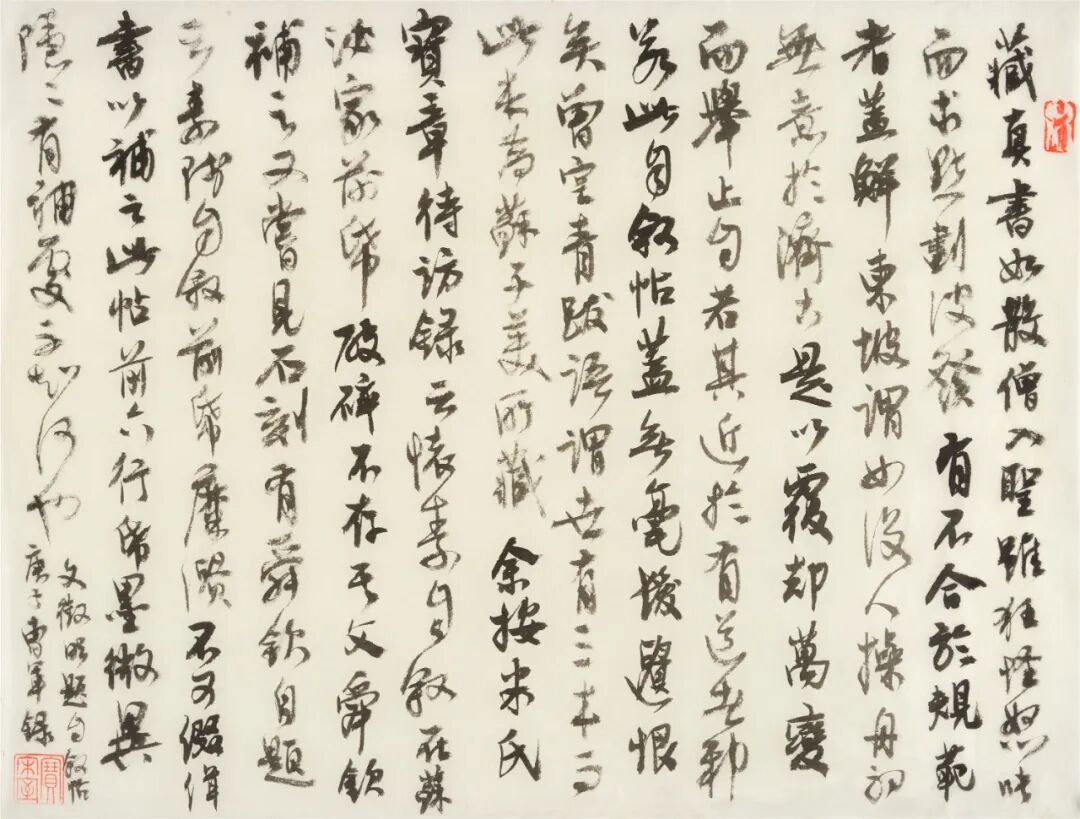 藏真書如散僧入聖雖狂怪怒張
而求點劃波發有不合於規範
者蓋鮮東坡謂如沒人操舟初
無意於濟否是以覆却萬變
而舉止自若其近於有道者耶
若此自叙帖蓋無毫髮遺恨
矣曾空青跋語謂世有三本而
此本為蘇子美所藏余按米氏
寶章待訪錄云懷素自叙在蘇
泌家前紙破碎不存其父舜欽
補之又嘗見石刻有舜欽自題
云素師自叙前紙糜潰不可綴緝
書以補之此帖前六行紙墨微異
隱隱有補處不知何也
文徵明題自叙帖
庚子曹軍錄